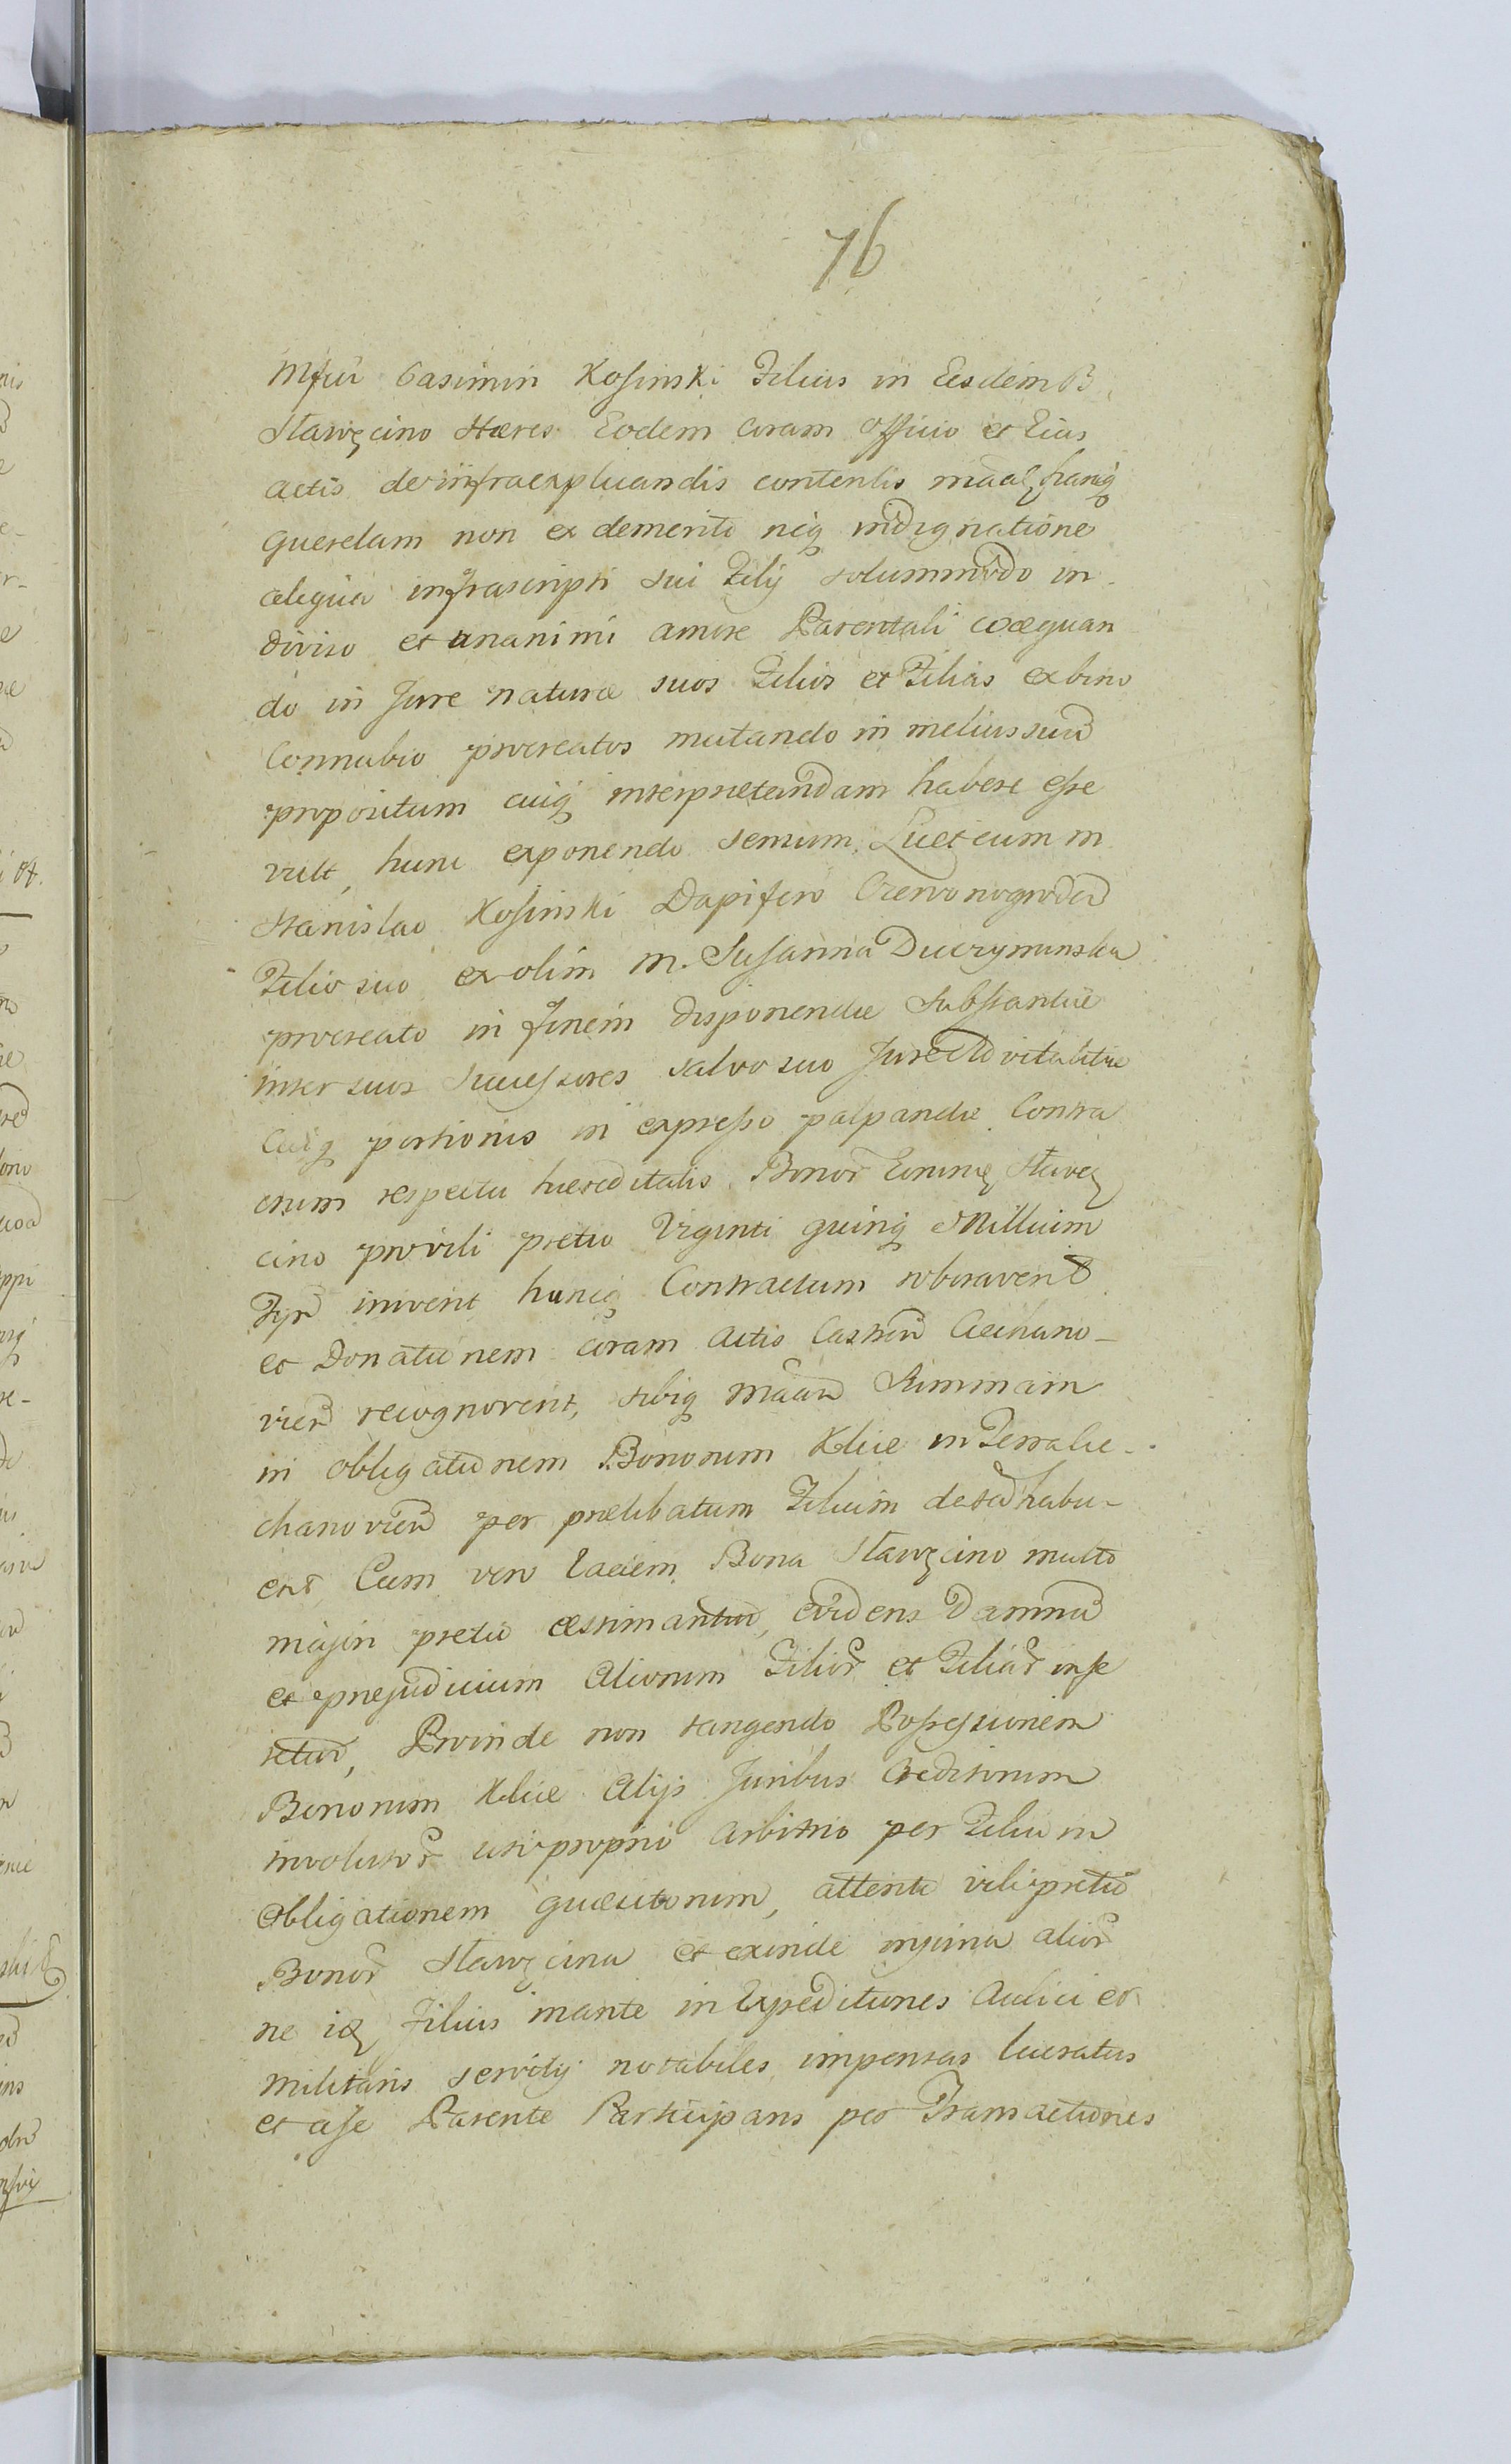 76
Mfci Casimiri Kosinski Filius in Eisdem B.
Stawęcino Hæres Eodem coram Officio et Eius
actis de infraexplicandis contentis hancq
querelam non ex demerito neq indignatione
aliqua infrascripti sui Filij solummodo in-
diviso et unanimi amore Parentali coæquan
do in Jure naturæ suos Filios et Filias ex bino
Connubio procreatos mutando in melius suũ
propositum cuiq interpretandam habere esse
vult, hunc exponendo sensum, Licet cum M.
Stanislao Kosinski Dapifero Czerwonogroden
Filio suo ex olim M. Susanna Duczyminska
procreato in finem disponendæ Substantiæ
inter suos Successores salvo suo Jure Advitalitiæ
Cuiq portionis in expresso palpandæ Contra
ctum respectu hæreditatis Bonor Stawę
cino pro vili pretio Viginti quinq Millium
Fpl iniverit huncq Contractum roboraverit
et Donationem coram Actis Castren Ciechano-
vien recognoverit, sibiq Summam
in obligationem Bonorum Klice in Terra Cie-
chanovien per prælibatum Filium habu-
erit Cum vero Eadem Bona Stawęcino multo
majori pretio æstimantur, evidens Damnũ
et prejudicium Aliorum Filior et Filiar infe
retur, Proinde non tangendo Possessionem
Bonorum Klice Alijs Juribus Creditorum
involutor uti proprio arbitrio per Filium in
obligationem quæsitorum, attento vili pretio
Bonor Stawęcina et exinde injuria alior
ne Filius in Expeditiones Aulici et
Militaris servitij notabiles impensas lucratus
et a se Parente Participans per Transactiones